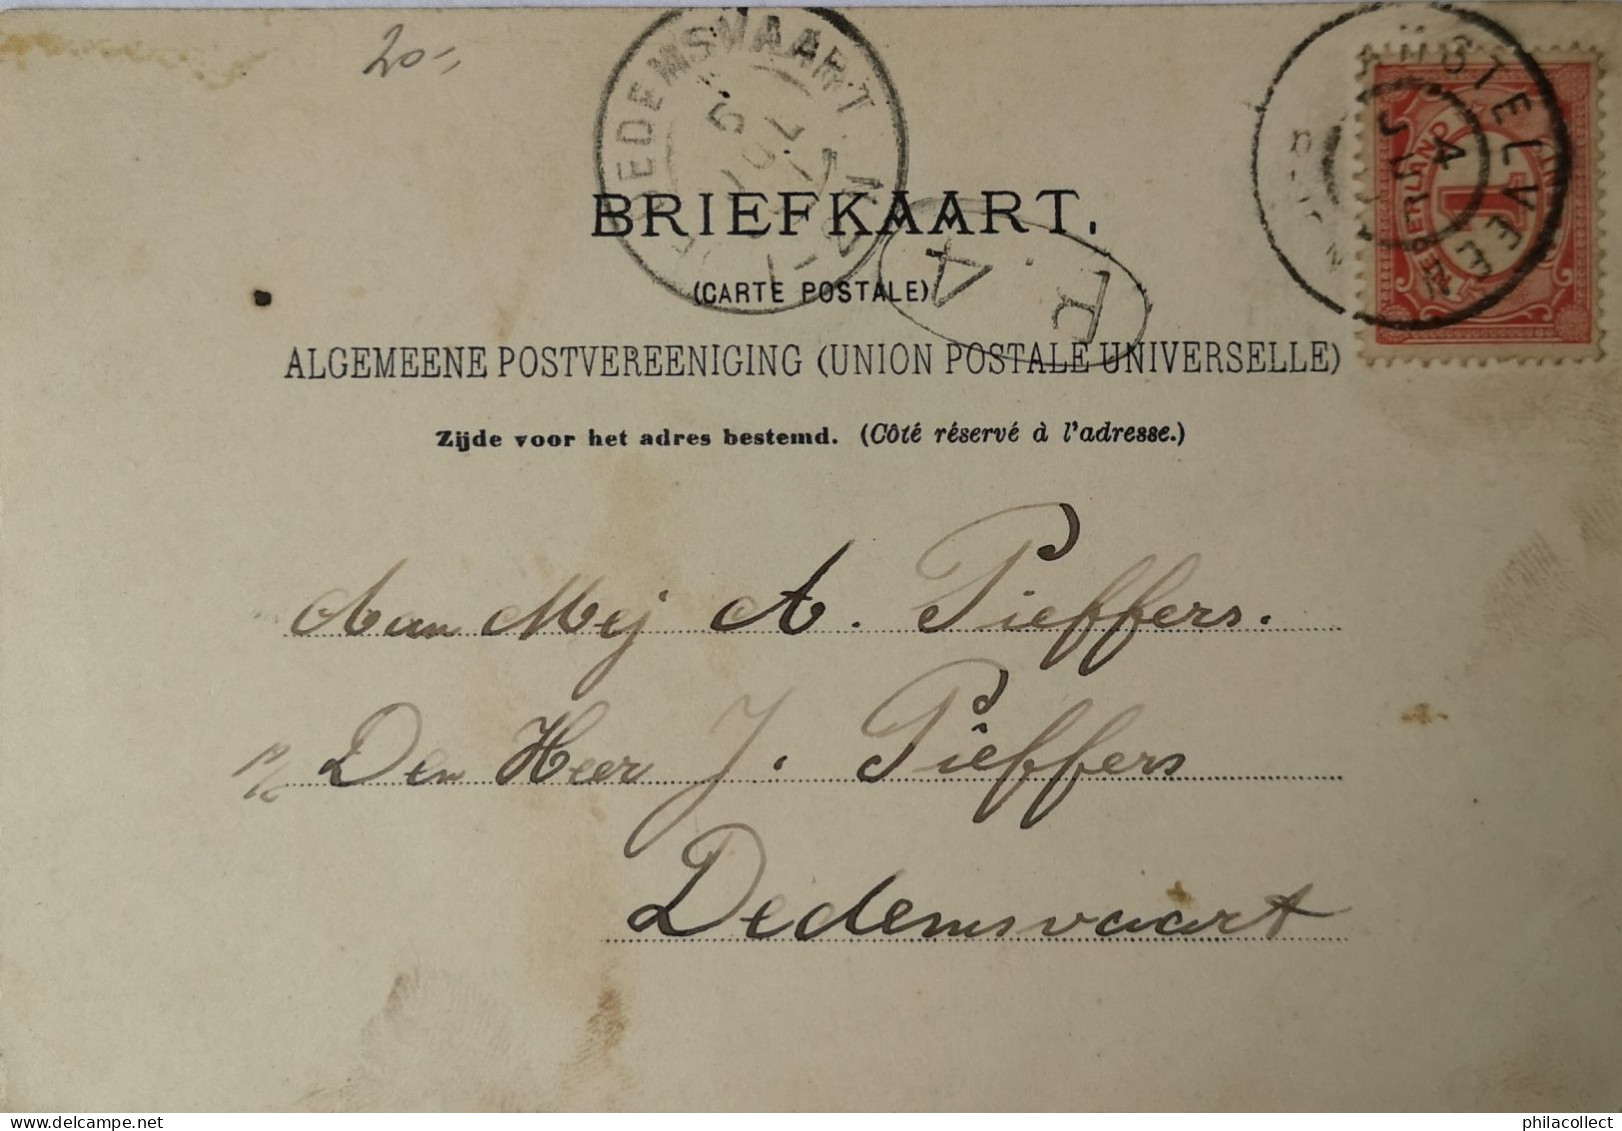 20-,
DEDEMSVAART
5 JUL
AMSTELVEEN
4 JUL
NEDERLAND
1
BRIEFKAART.
(CARTE POSTALE)
R. A
ALGEMEENE POSTVEREENIGING (UNION POSTALE UNIVERSELLE)
Zijde voor het adres bestemd. (Côté réservé à l'adresse.)
Aan Mej A. Pieffers.
p/a Den Heer J. Pieffers
Dedemsvaart
philacollect